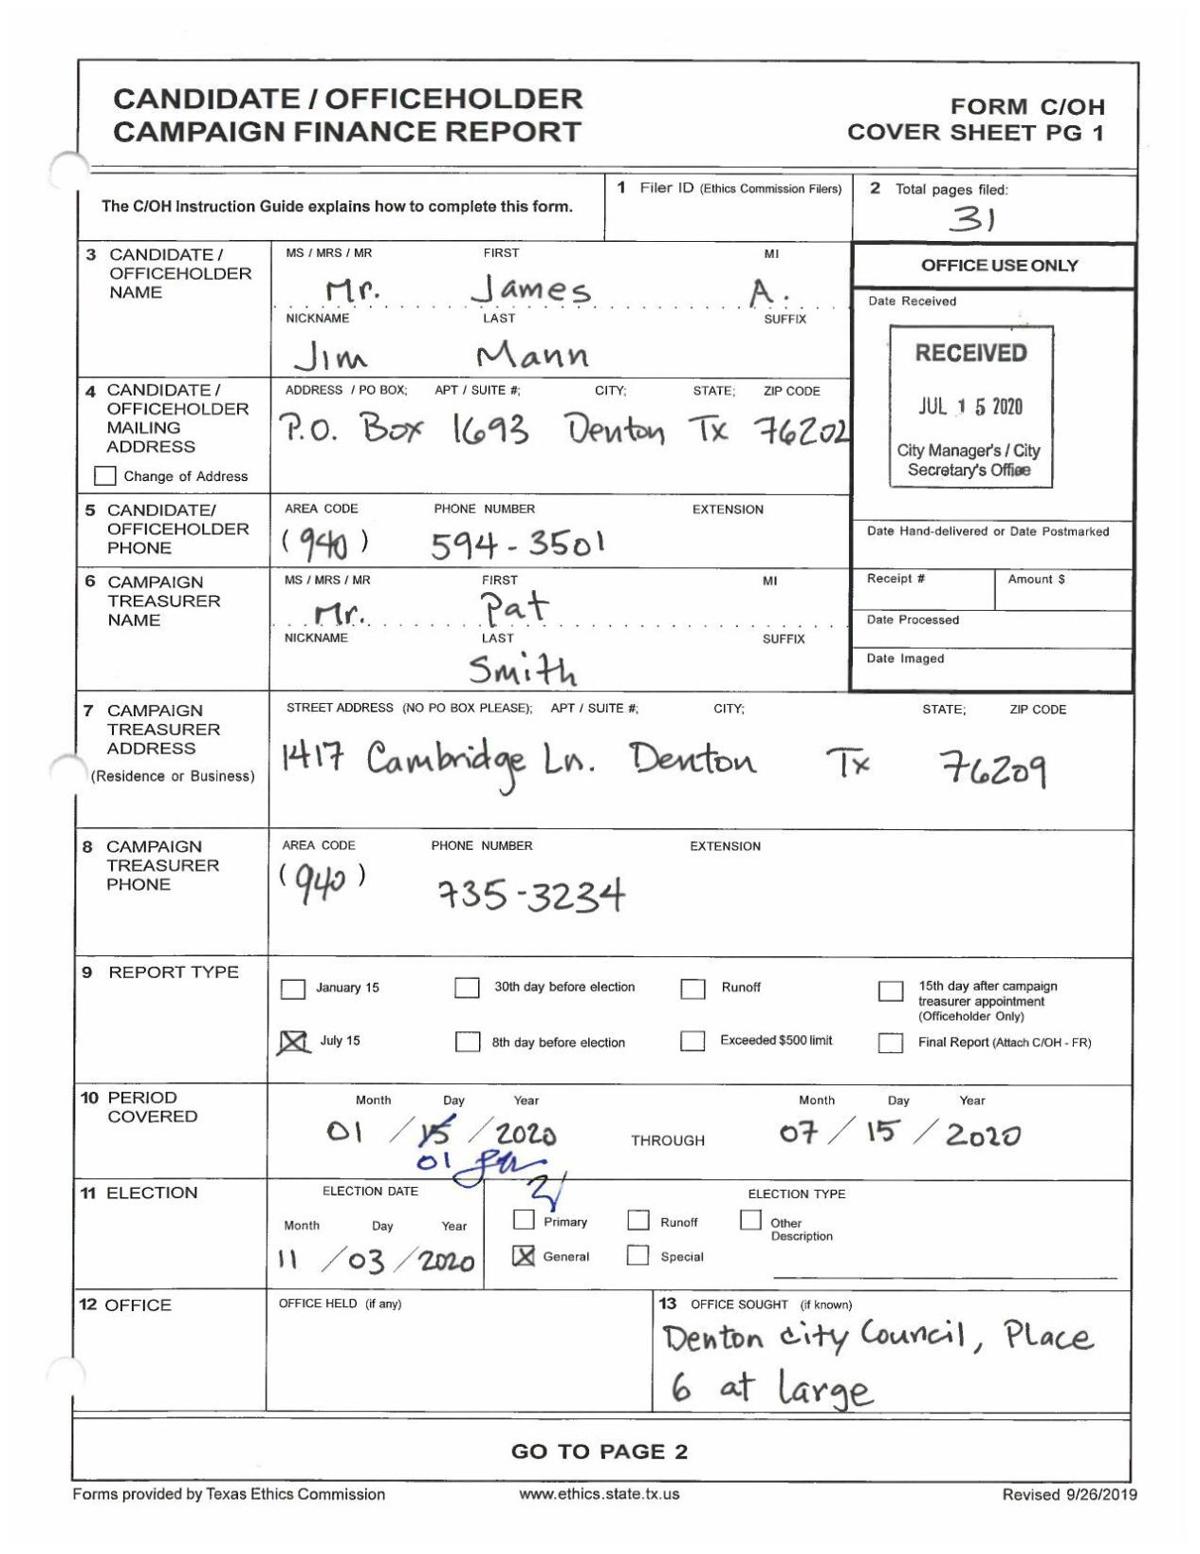 CANDIDATE / OFFICEHOLDER
CAMPAIGN FINANCE REPORT
FORM C/OH
COVER SHEET PG 1
The C/OH Instruction Guide explains how to complete this form.
1 Filer ID (Ethics Commission Filers)
2 Total pages filed:
31
3 CANDIDATE /
OFFICEHOLDER
NAME
MS / MRS / MR FIRST MI
Mr. James A.
NICKNAME LAST SUFFIX
Jim Mann
OFFICE USE ONLY
Date Received
RECEIVED
JUL 15 2020
City Manager's / City
Secretary's Office
4 CANDIDATE /
OFFICEHOLDER
MAILING
ADDRESS
Change of Address
ADDRESS / PO BOX; APT / SUITE #; CITY; STATE; ZIP CODE
P.O. Box 1693 Denton Tx 76202
5 CANDIDATE/
OFFICEHOLDER
PHONE
AREA CODE PHONE NUMBER EXTENSION
(940) 594-3501
Date Hand-delivered or Date Postmarked
Receipt # Amount $
Date Processed
Date Imaged
6 CAMPAIGN
TREASURER
NAME
MS / MRS / MR FIRST MI
Mr. Pat
NICKNAME LAST SUFFIX
Smith
7 CAMPAIGN
TREASURER
ADDRESS
(Residence or Business)
STREET ADDRESS (NO PO BOX PLEASE); APT / SUITE #; CITY; STATE; ZIP CODE
1417 Cambridge Ln. Denton Tx 76209
8 CAMPAIGN
TREASURER
PHONE
AREA CODE PHONE NUMBER EXTENSION
(940) 735-3234
9 REPORT TYPE
January 15 30th day before election Runoff 15th day after campaign
treasurer appointment
(Officeholder Only)
July 15 8th day before election Exceeded $500 limit Final Report (Attach C/OH - FR)
10 PERIOD
COVERED
Month Day Year Month Day Year
01 / 15 / 2020 THROUGH 07 / 15 / 2020
01
11 ELECTION
ELECTION DATE ELECTION TYPE
Month Day Year
11 / 03 / 2020
Primary Runoff Other
Description
General Special
12 OFFICE
OFFICE HELD (if any)
13 OFFICE SOUGHT (if known)
Denton City Council, Place
6 at large
GO TO PAGE 2
Forms provided by Texas Ethics Commission www.ethics.state.tx.us Revised 9/26/2019